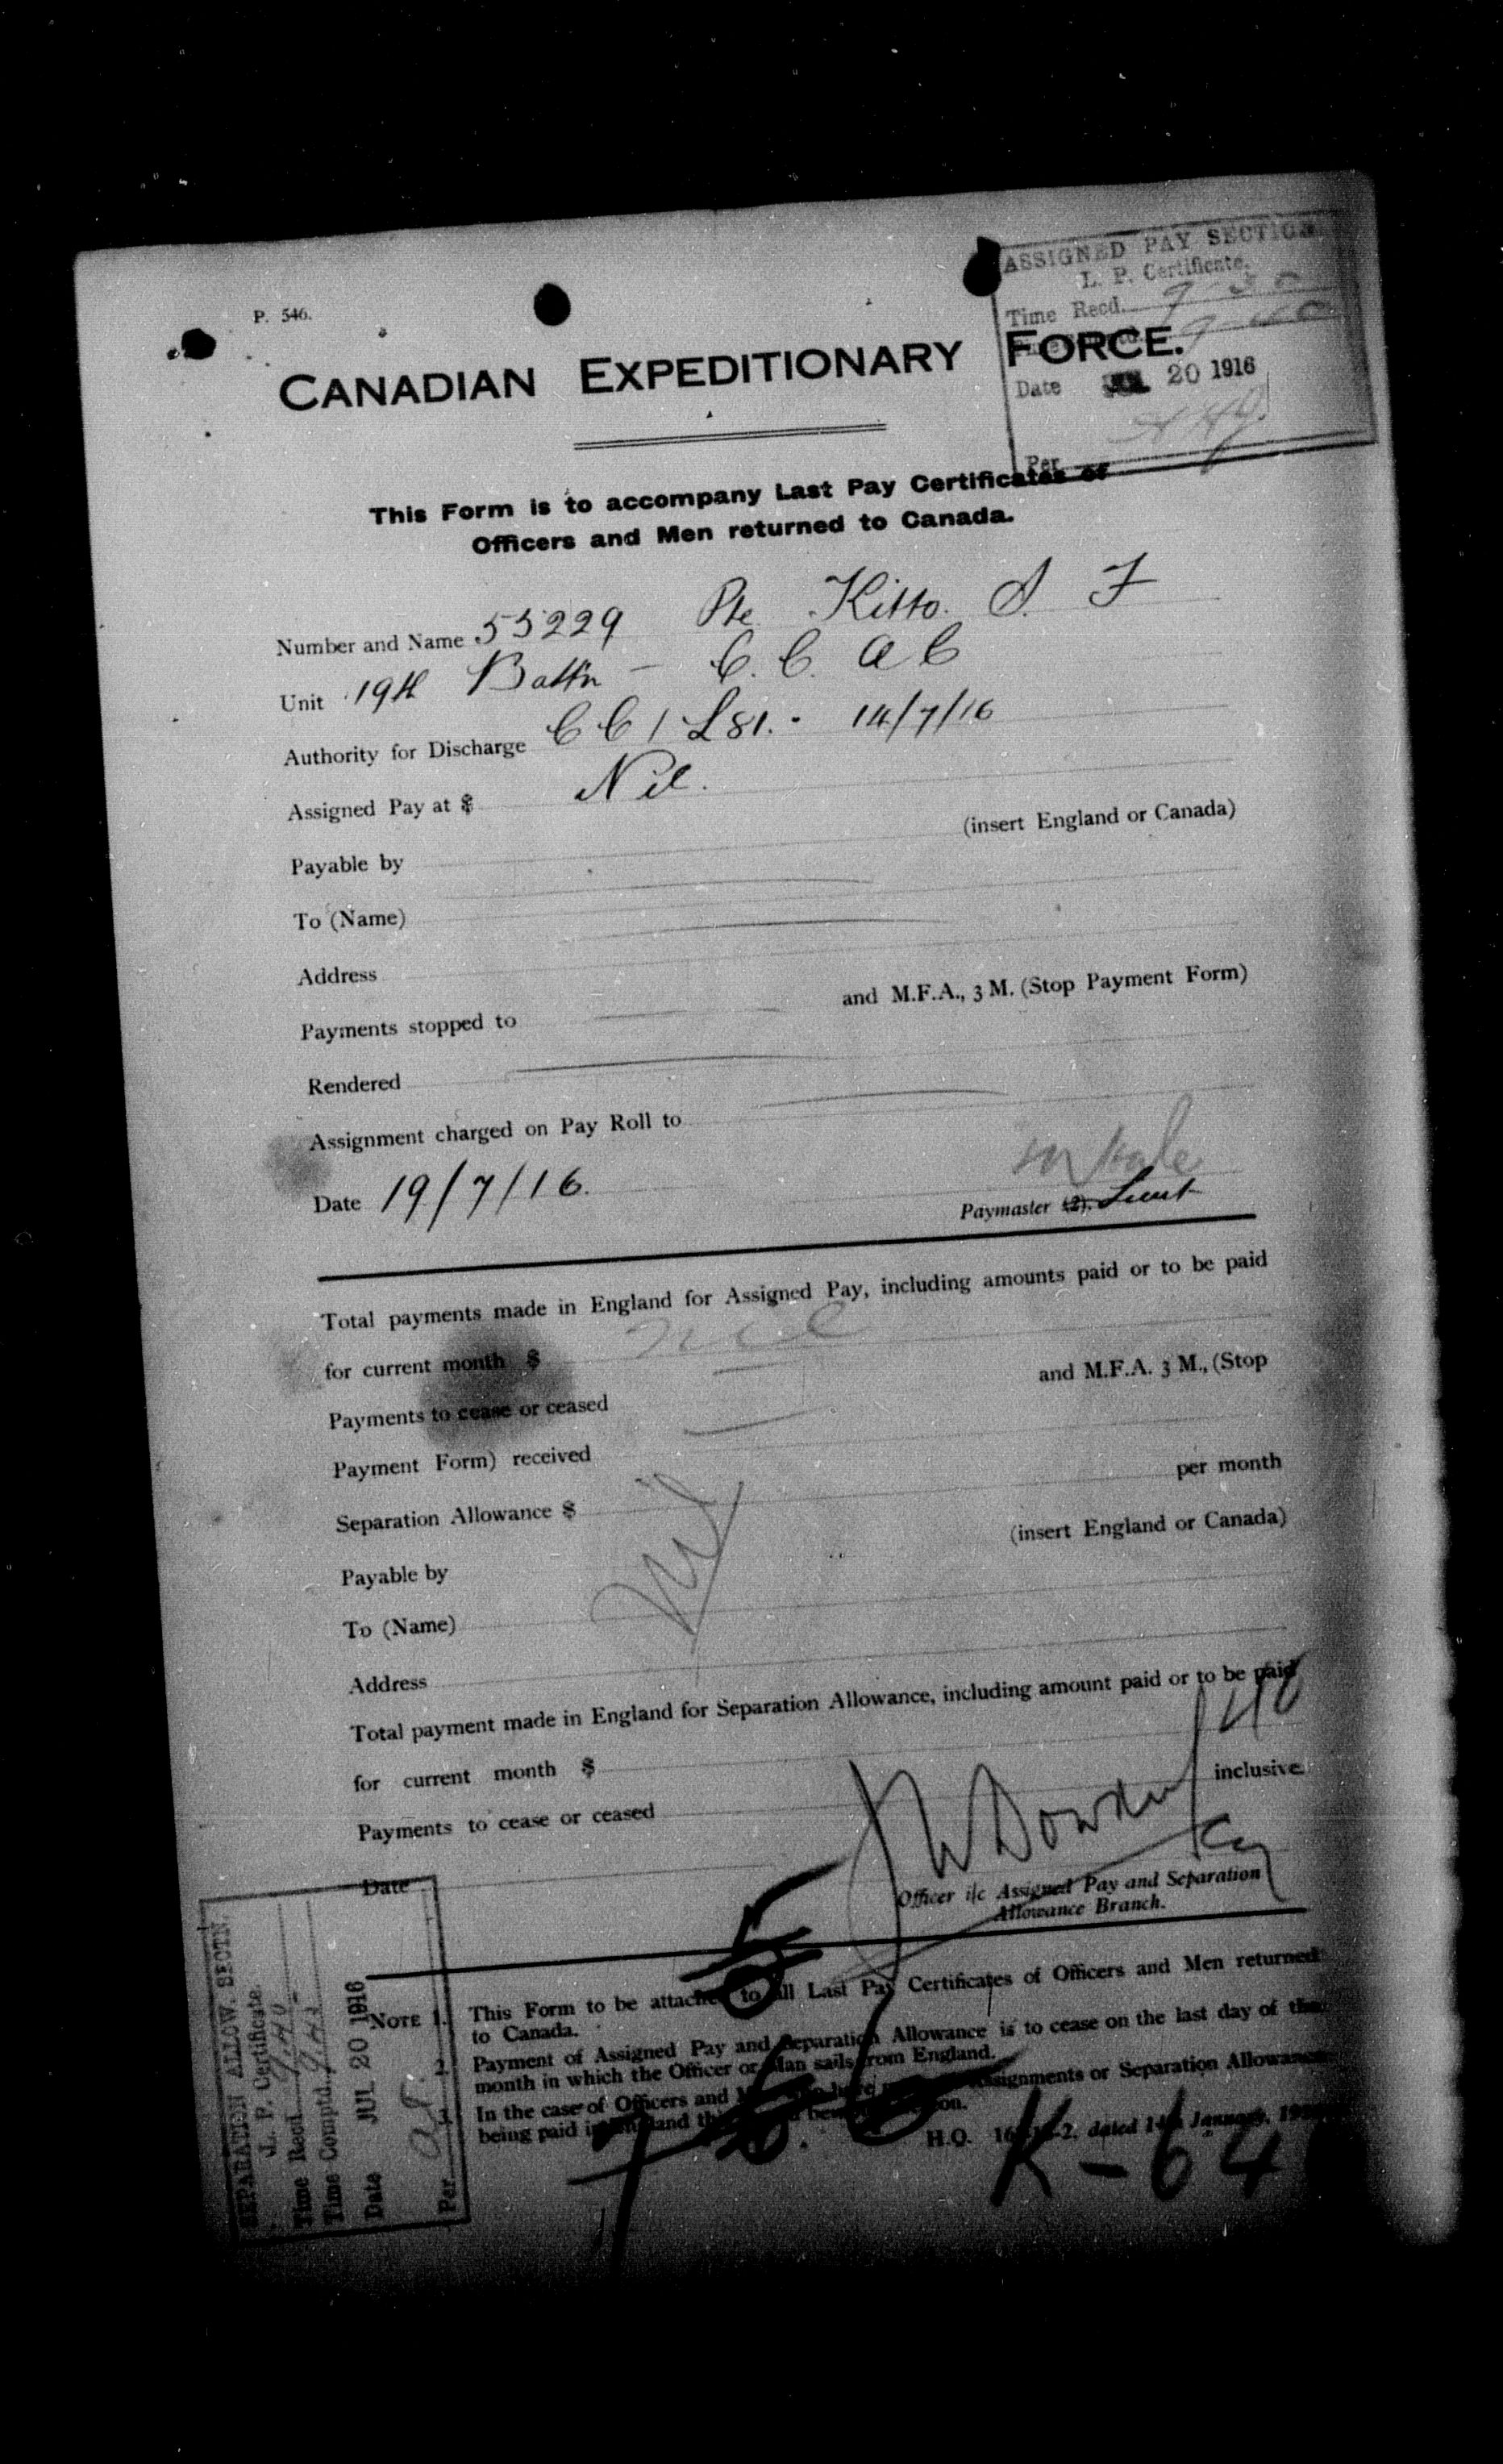 P. 546.
ASSIGNED PAY SECTION
L. P. Certificate.
Time Recd. 9-30
Date JUL 20 1916
Per
CANADIAN EXPEDITIONARY FORCE.
This Form is to accompany Last Pay Certificates of
Officers and Men returned to Canada.
Number and Name 53229 Pte Kitto. S. F
Unit 19th Battn - C. C. A C
Authority for Discharge C C / L81. - 14/7/16
Assigned Pay at $ Nil.
Payable by (insert England or Canada)
To (Name)
Address
Payments stopped to and M.F.A., 3 M. (Stop Payment Form)
Rendered
Assignment charged on Pay Roll to
Date 19/7/16.
Paymaster (2). Lieut
Total payments made in England for Assigned Pay, including amounts paid or to be paid
for current month $ nil
Payments to cease or ceased and M.F.A. 3 M., (Stop
Payment Form) received
Separation Allowance $ per month
Nil
Payable by (insert England or Canada)
To (Name)
Address
Total payment made in England for Separation Allowance, including amount paid or to be paid
for current month $
Payments to cease or ceased inclusive.
Date
Officer i/c Assigned Pay and Separation
Allowance Branch.
SEPARATION ALLOW. SECTN.
L. P. Certificate.
Time Recd. 9.40
Time Comptd.
Date JUL 20 1916
Per
NOTE 1. This Form to be attached to all Last Pay Certificates of Officers and Men returned
to Canada.
2. Payment of Assigned Pay and Separation Allowance is to cease on the last day of the
month in which the Officer or Man sails from England.
3. In the case of Officers and Assignments or Separation Allowance
being paid in England
H.Q. dated 14th January,
K-64